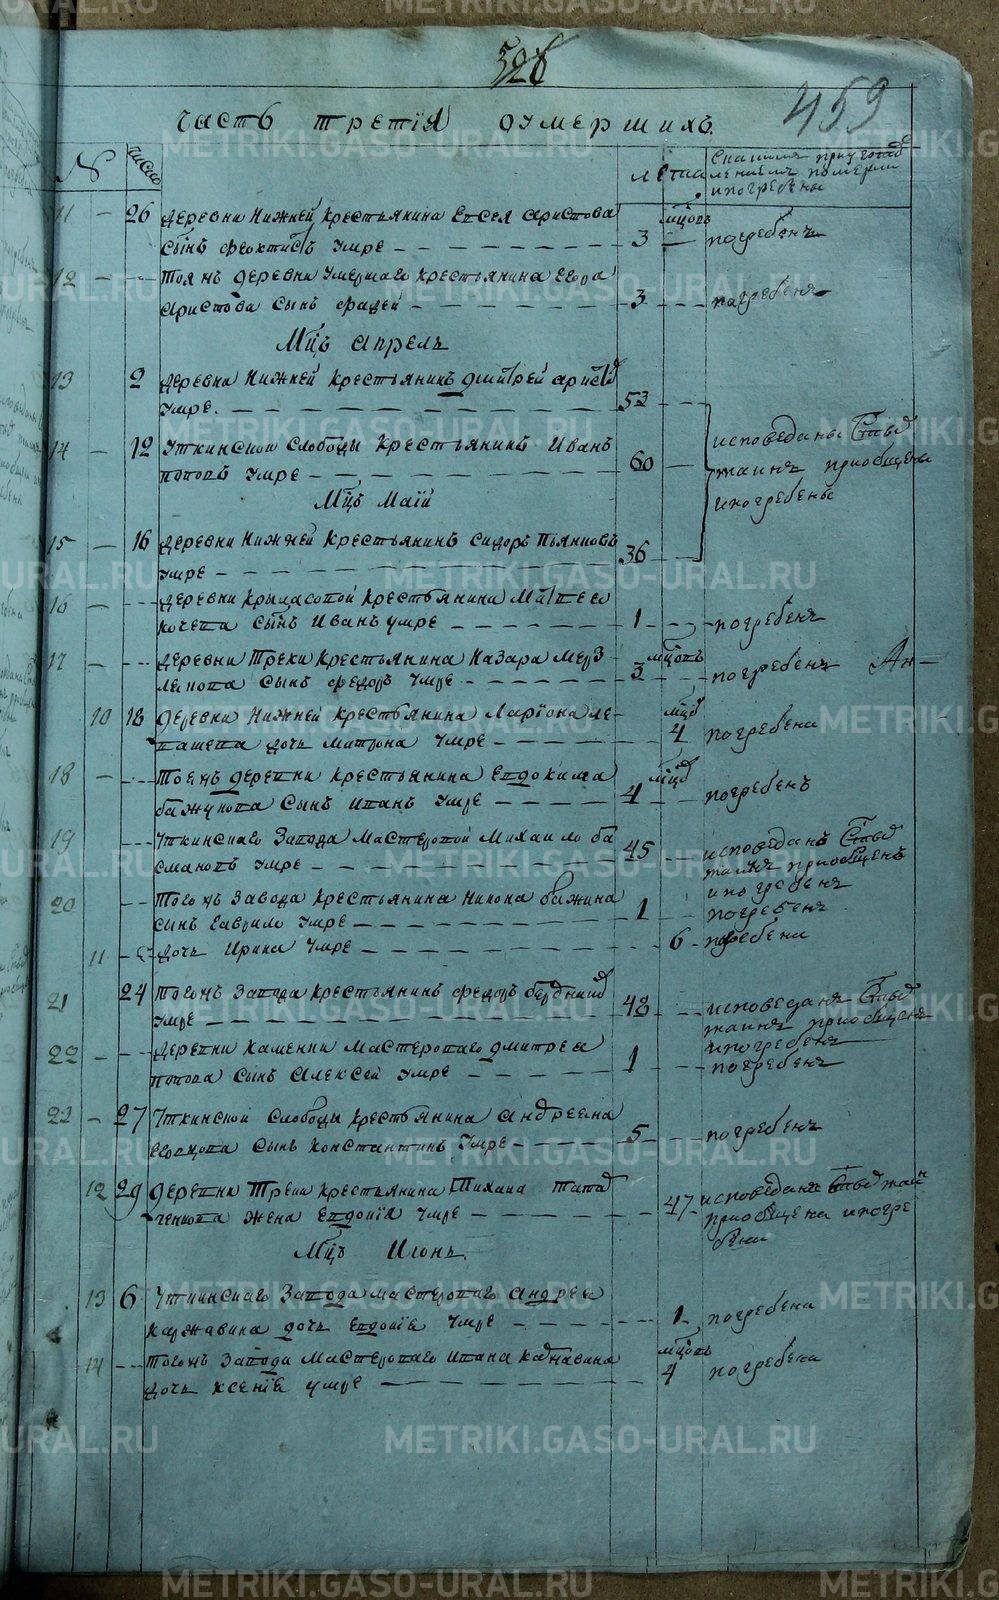 528
459
часть третïя оумершихъ
№ число лета С каким приуготовлением померли и погребены
11 — 26 деревни Нижней крестьянина Евсея Аристова мцовъ
сынъ Феоктистъ умре — 3 — погребенъ
12 — — тоя жъ деревни умершаго крестьянина Егора
Аристова сынъ Фадей — 3 — погребенъ
Мцъ Апрель
13 2 деревни Нижней крестьянинъ Дмитрей Аристов
умре. — 53
14 — 12 Уткинской слободы крестьянинъ Иванъ
Поповъ умре — 60 — исповеданы Св. тайнъ приобщены и погребены
Мцъ Маïй
15 — 16 деревни Нижней крестьянинъ Сидоръ Пьянковъ
умре — 36
16 — — деревни Крыласовой крестьянина Матвея
Кочева сынъ Иванъ умре — 1 — погребенъ
17 — — деревни Треки крестьянина Назара Мерз мцовъ
лякова сынъ Федоръ умре — 3 — погребенъ
10 18 деревни Нижней крестьянина Ларïона Ле- мцов
пашева дочь Матрона умре — 4 погребена
18 — — тоя жъ деревни крестьянина Евдокима мцов
Бажукова сынъ Иванъ умре — 4 — погребенъ
19 — — Уткинскаго завода мастеровой Михаило Ба
смановъ умре — 45 исповеданъ Св. тайнъ приобщенъ
и погребенъ
20 — — того жъ завода крестьянина Никона Бажина
сынъ Гаврило умре — 1 — погребенъ
11 — дочь Ирина умре — 6 — погребена
21 24 того жъ завода крестьянинъ Федоръ Бердников
умре — 48 — исповеданъ Св. тайнъ приобщенъ
и погребенъ
22 — — деревни Каменки мастероваго Дмитрея
Попова сынъ Алексей умре — 1 — погребенъ
23 — 27 Уткинской слободы крестьянина Андреяна
сынъ Константинъ умре — 5 — погребенъ
12 29 деревни Треки крестьянина Михаила Татар
ченкова жена Евдокïя умре — 47 — исповедана Св. тайн
приобщена и погре
бена
Мцъ Июнь.
13 6 Уткинскаго завода мастероваго Андрея
Каржавина дочь Евдокïя умре — 1 — погребена
14 — — того жъ завода мастероваго Ивана Каржавина мцовъ
дочь Ксенïя умре — 4 погребена
METRIKI.GASO-URAL.RU